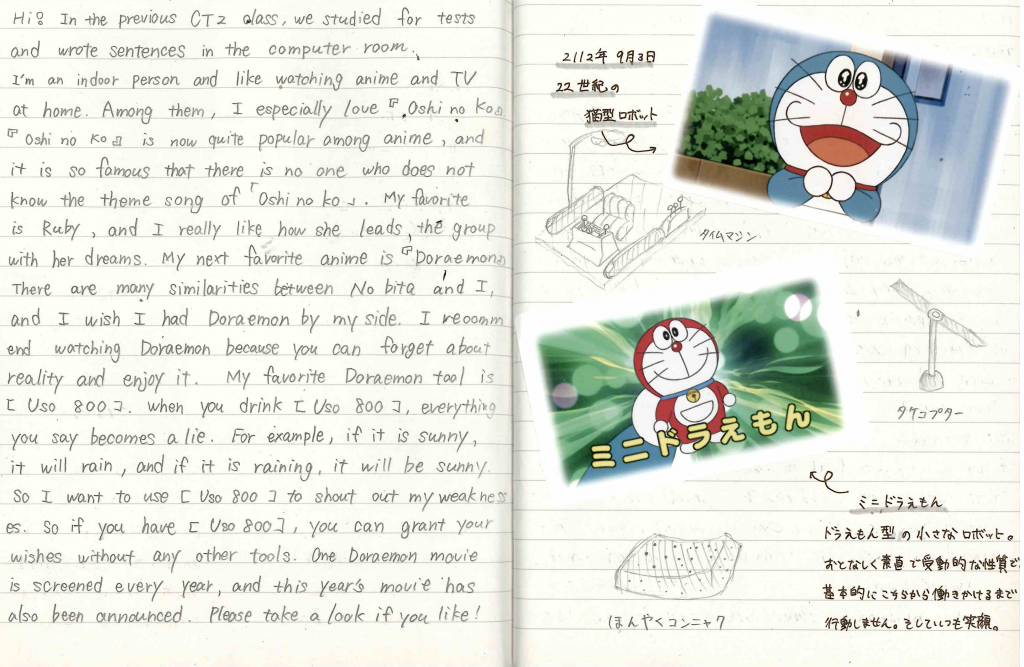 Hi! In the previous CT2 class, we studied for tests
and wrote sentences in the computer room.
I'm an indoor person and like watching anime and TV
at home. Among them, I especially love『Oshi no Ko』
『Oshi no Ko』 is now quite popular among anime, and
it is so famous that there is no one who does not
know the theme song of 「Oshi no ko」. My favorite
is Ruby, and I really like how she leads, the group
with her dreams. My next favorite anime is『Doraemon』
There are many similarities between No bita and I,
and I wish I had Doraemon by my side. I recomm
end watching Doraemon because you can forget about
reality and enjoy it. My favorite Doraemon tool is
[ Uso 800 ]. when you drink [ Uso 800 ], everything
you say becomes a lie. For example, if it is sunny,
it will rain, and if it is raining, it will be sunny.
So I want to use [ Uso 800 ] to shout out my weakness
es. So if you have [ Uso 800 ], you can grant your
wishes without any other tools. One Doraemon movie
is screened every year, and this year's movie has
also been announced. Please take a look if you like!
2112年 9月3日
22世紀の
猫型ロボット
タイムマシン
タケコプター
ミニドラえもん
ミニドラえもん
ドラえもん型の小さなロボット。
おとなしく素直で受動的な性質で
基本的にこちらから働きかけるまで
行動しません。そしていつも笑顔。
ほんやくコンニャク